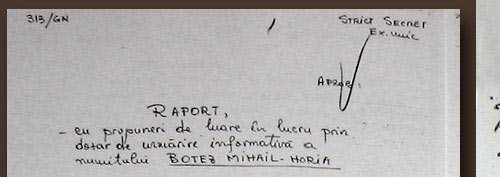 313/GN
STRICT SECRET
Ex. unic
APROB:
RAPORT,
- cu propuneri de luare în lucru prin
dosar de urmărire informativă a
numitului BOTEZ MIHAIL-HORIA